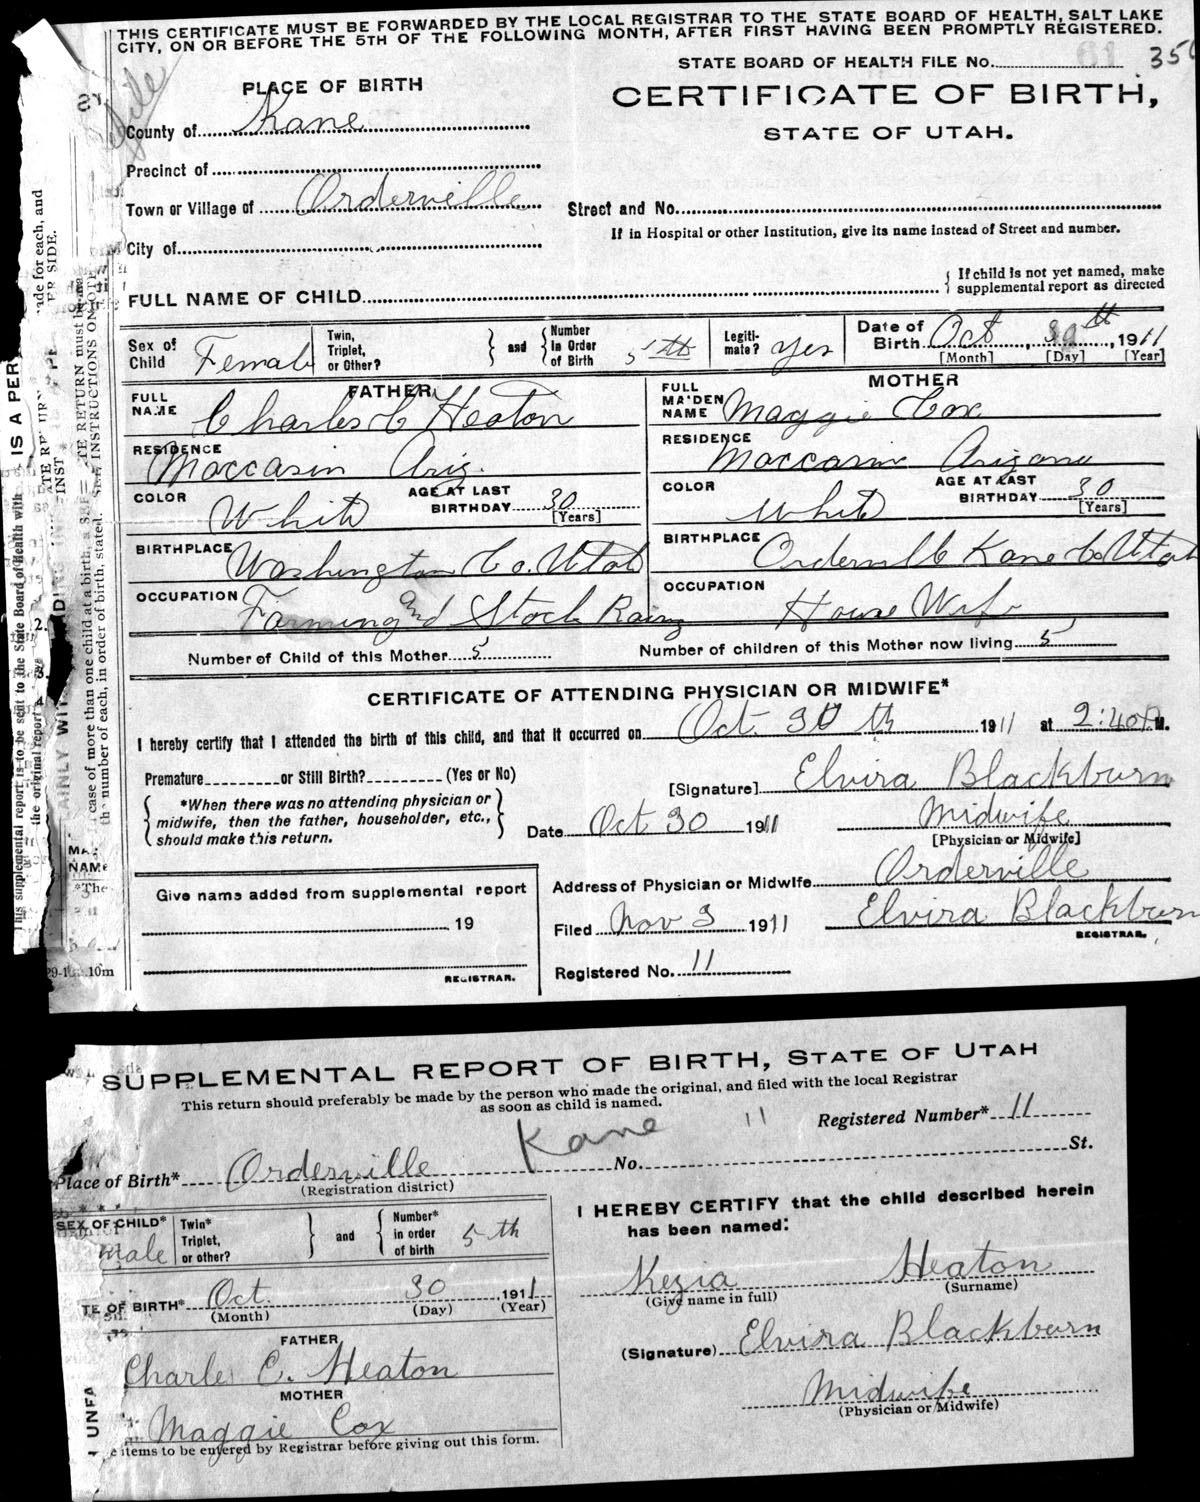 THIS CERTIFICATE MUST BE FORWARDED BY THE LOCAL REGISTRAR TO THE STATE BOARD OF HEALTH, SALT LAKE
CITY, ON OR BEFORE THE 5TH OF THE FOLLOWING MONTH, AFTER FIRST HAVING BEEN PROMPTLY REGISTERED.
STATE BOARD OF HEALTH FILE No. 61 350
PLACE OF BIRTH
CERTIFICATE OF BIRTH,
STATE OF UTAH.
County of Kane
Precinct of
Town or Village of Orderville
Street and No.
If in Hospital or other Institution, give its name instead of Street and number.
City of
FULL NAME OF CHILD
{ If child is not yet named, make
supplemental report as directed
Sex of Child Female
Twin, Triplet, or Other? } and { Number in Order of Birth 5th
Legiti-mate? yes
Date of Birth Oct 30th, 1911
[Month] [Day] [Year]
FATHER
MOTHER
FULL NAME Charles C Heaton
FULL MAIDEN NAME Maggie Cox
RESIDENCE Moccasin Ariz.
RESIDENCE Moccasin Arizona
COLOR White AGE AT LAST BIRTHDAY 30 [Years]
COLOR White AGE AT LAST BIRTHDAY 30 [Years]
BIRTHPLACE Washington Co. Utah
BIRTHPLACE Orderville Kane Co Utah
OCCUPATION Farming and Stock Raing
OCCUPATION House Wife
Number of Child of this Mother 5
Number of children of this Mother now living 5
CERTIFICATE OF ATTENDING PHYSICIAN OR MIDWIFE*
I hereby certify that I attended the birth of this child, and that it occurred on Oct. 30 th 1911 at 2:40 P.M.
Premature or Still Birth? (Yes or No)
[Signature] Elvira Blackburn
{ *When there was no attending physician or
midwife, then the father, householder, etc.,
should make this return. }
Date Oct 30 1911
Midwife
[Physician or Midwife]
Give name added from supplemental report
19
REGISTRAR.
Address of Physician or Midwife Orderville
Filed Nov 3 1911 Elvira Blackburn
REGISTRAR.
Registered No. 11
SUPPLEMENTAL REPORT OF BIRTH, STATE OF UTAH
This return should preferably be made by the person who made the original, and filed with the local Registrar
as soon as child is named.
Kane 11
Registered Number* 11
Place of Birth* Orderville No. St.
(Registration district)
SEX OF CHILD* male
Twin* Triplet, or other? } and { Number* in order of birth 5 th
TE OF BIRTH* Oct. 30 1911
(Month) (Day) (Year)
FATHER
Charles C. Heaton
MOTHER
Maggie Cox
e items to be entered by Registrar before giving out this form.
I HEREBY CERTIFY that the child described herein
has been named:
Kezia Heaton
(Give name in full) (Surname)
(Signature) Elvira Blackburn
Midwife
(Physician or Midwife)